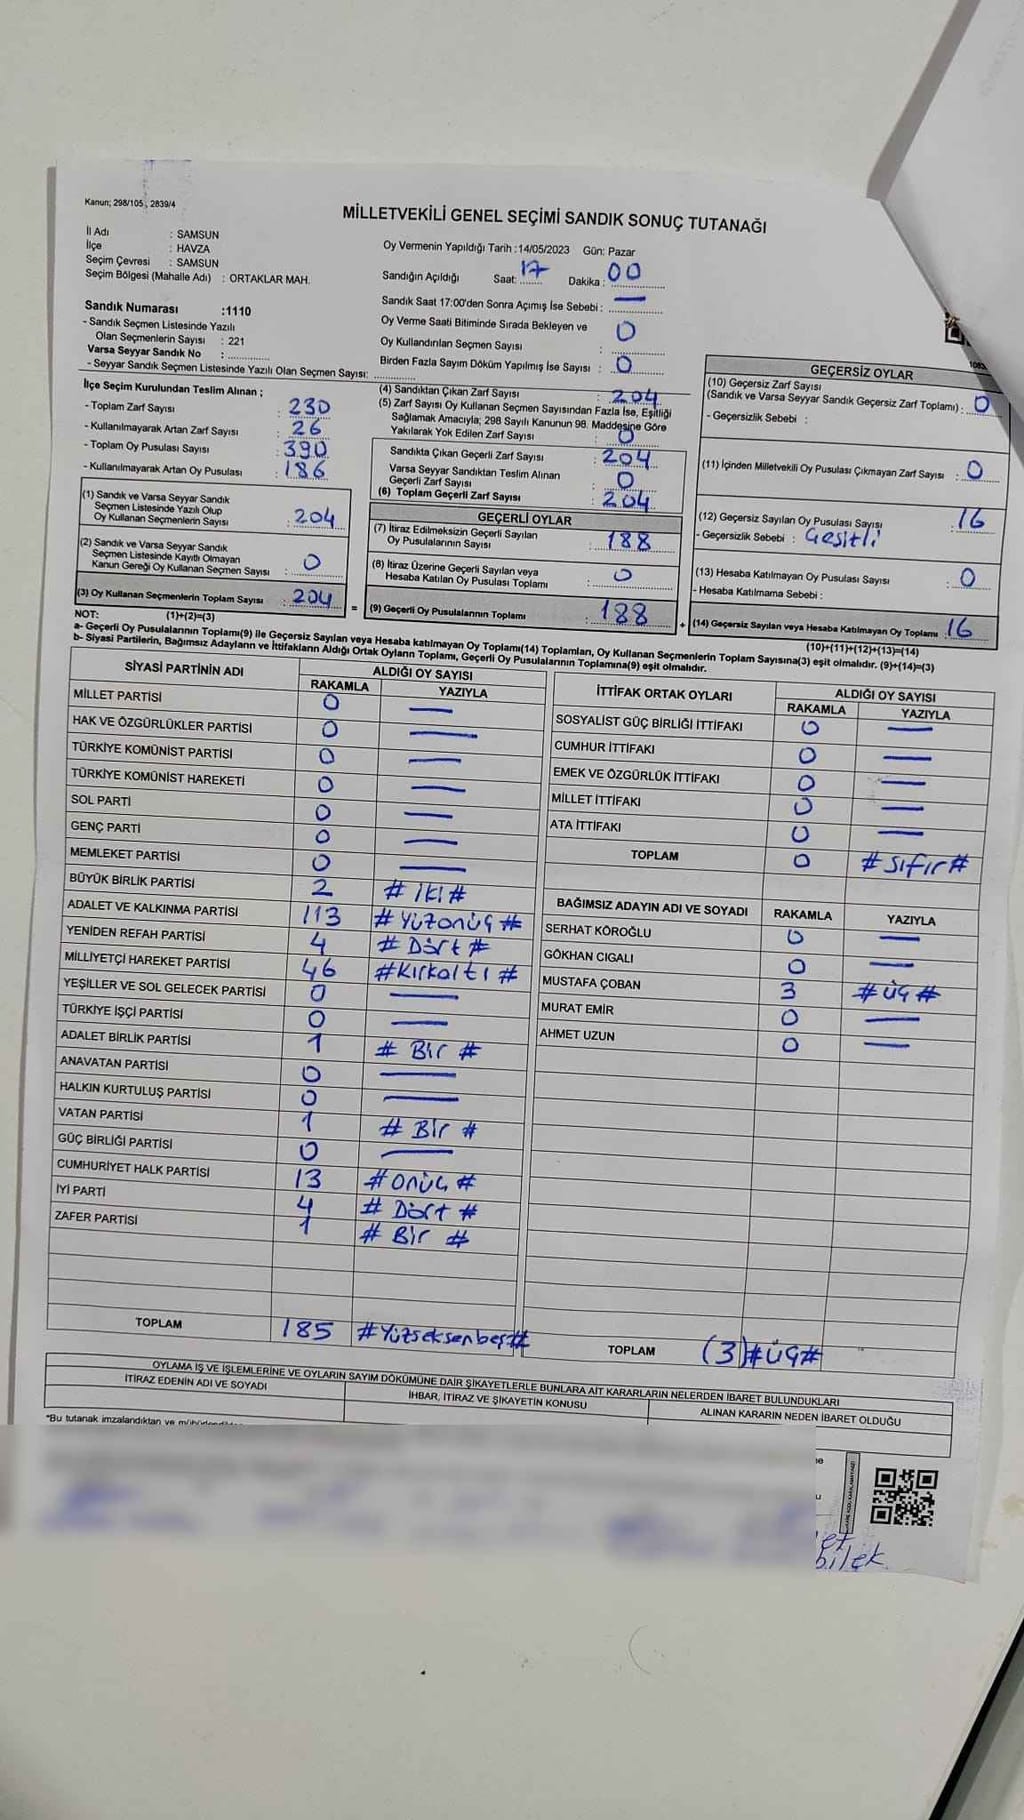 Kanun; 298/105 , 2839/4
MİLLETVEKİLİ GENEL SEÇİMİ SANDIK SONUÇ TUTANAĞI
İl Adı : SAMSUN
İlçe : HAVZA
Seçim Çevresi : SAMSUN
Seçim Bölgesi (Mahalle Adı) : ORTAKLAR MAH.
Sandık Numarası :1110
- Sandık Seçmen Listesinde Yazılı
Olan Seçmenlerin Sayısı : 221
Varsa Seyyar Sandık No :
- Seyyar Sandık Seçmen Listesinde Yazılı Olan Seçmen Sayısı:
Oy Vermenin Yapıldığı Tarih :14/05/2023 Gün: Pazar
Sandığın Açıldığı Saat: 17 Dakika : 00
Sandık Saat 17:00'den Sonra Açımış İse Sebebi : —
Oy Verme Saati Bitiminde Sırada Bekleyen ve
Oy Kullandırılan Seçmen Sayısı : 0
Birden Fazla Sayım Döküm Yapılmış İse Sayısı : 0
İlçe Seçim Kurulundan Teslim Alınan ;
- Toplam Zarf Sayısı : 230
- Kullanılmayarak Artan Zarf Sayısı : 26
- Toplam Oy Pusulası Sayısı : 390
- Kullanılmayarak Artan Oy Pusulası : 186
(1) Sandık ve Varsa Seyyar Sandık
Seçmen Listesinde Yazılı Olup
Oy Kullanan Seçmenlerin Sayısı : 204
(2) Sandık ve Varsa Seyyar Sandık
Seçmen Listesinde Kayıtlı Olmayan
Kanun Gereği Oy Kullanan Seçmen Sayısı : 0
(3) Oy Kullanan Seçmenlerin Toplam Sayısı : 204
(1)+(2)=(3)
(4) Sandıktan Çıkan Zarf Sayısı : 204
(5) Zarf Sayısı Oy Kullanan Seçmen Sayısından Fazla İse, Eşitliği
Sağlamak Amacıyla; 298 Sayılı Kanunun 98. Maddesine Göre
Yakılarak Yok Edilen Zarf Sayısı : 0
Sandıkta Çıkan Geçerli Zarf Sayısı : 204
Varsa Seyyar Sandıktan Teslim Alınan
Geçerli Zarf Sayısı : 0
(6) Toplam Geçerli Zarf Sayısı : 204
GEÇERLİ OYLAR
(7) İtiraz Edilmeksizin Geçerli Sayılan
Oy Pusulalarının Sayısı : 188
(8) İtiraz Üzerine Geçerli Sayılan veya
Hesaba Katılan Oy Pusulası Toplamı : 0
= (9) Geçerli Oy Pusulalarının Toplamı : 188
GEÇERSİZ OYLAR
(10) Geçersiz Zarf Sayısı
(Sandık ve Varsa Seyyar Sandık Geçersiz Zarf Toplamı) : 0
- Geçersizlik Sebebi :
(11) İçinden Milletvekili Oy Pusulası Çıkmayan Zarf Sayısı : 0
(12) Geçersiz Sayılan Oy Pusulası Sayısı : 16
- Geçersizlik Sebebi : Çeşitli
(13) Hesaba Katılmayan Oy Pusulası Sayısı : 0
- Hesaba Katılmama Sebebi :
+ (14) Geçersiz Sayılan veya Hesaba Katılmayan Oy Toplamı : 16
(10)+(11)+(12)+(13)=(14)
NOT:
a- Geçerli Oy Pusulalarının Toplamı(9) ile Geçersiz Sayılan veya Hesaba katılmayan Oy Toplamı(14) Toplamları, Oy Kullanan Seçmenlerin Toplam Sayısına(3) eşit olmalıdır. (9)+(14)=(3)
b- Siyasi Partilerin, Bağımsız Adayların ve İttifakların Aldığı Ortak Oyların Toplamı, Geçerli Oy Pusulalarının Toplamına(9) eşit olmalıdır.
SİYASİ PARTİNİN ADI ALDIĞI OY SAYISI
RAKAMLA YAZIYLA
MİLLET PARTİSİ 0 —
HAK VE ÖZGÜRLÜKLER PARTİSİ 0 —
TÜRKİYE KOMÜNİST PARTİSİ 0 —
TÜRKİYE KOMÜNİST HAREKETİ 0 —
SOL PARTİ 0 —
GENÇ PARTİ 0 —
MEMLEKET PARTİSİ 0 —
BÜYÜK BİRLİK PARTİSİ 2 # iki #
ADALET VE KALKINMA PARTİSİ 113 # Yüzonüç #
YENİDEN REFAH PARTİSİ 4 # Dört #
MİLLİYETÇİ HAREKET PARTİSİ 46 #Kırkaltı #
YEŞİLLER VE SOL GELECEK PARTİSİ 0 —
TÜRKİYE İŞÇİ PARTİSİ 0 —
ADALET BİRLİK PARTİSİ 1 # Bir #
ANAVATAN PARTİSİ 0 —
HALKIN KURTULUŞ PARTİSİ 0 —
VATAN PARTİSİ 1 # Bir #
GÜÇ BİRLİĞİ PARTİSİ 0 —
CUMHURİYET HALK PARTİSİ 13 # onüç #
İYİ PARTİ 4 # Dört #
ZAFER PARTİSİ 1 # Bir #
TOPLAM 185 #Yüzseksenbeş#
İTTİFAK ORTAK OYLARI ALDIĞI OY SAYISI
RAKAMLA YAZIYLA
SOSYALİST GÜÇ BİRLİĞİ İTTİFAKI 0 —
CUMHUR İTTİFAKI 0 —
EMEK VE ÖZGÜRLÜK İTTİFAKI 0 —
MİLLET İTTİFAKI 0 —
ATA İTTİFAKI 0 —
TOPLAM 0 # sıfır #
BAĞIMSIZ ADAYIN ADI VE SOYADI RAKAMLA YAZIYLA
SERHAT KÖROĞLU 0 —
GÖKHAN CIGALI 0 —
MUSTAFA ÇOBAN 3 # üç #
MURAT EMİR 0 —
AHMET UZUN 0 —
TOPLAM (3) #üç#
OYLAMA İŞ VE İŞLEMLERİNE VE OYLARIN SAYIM DÖKÜMÜNE DAİR ŞİKAYETLERLE BUNLARA AİT KARARLARIN NELERDEN İBARET BULUNDUKLARI
İTİRAZ EDENİN ADI VE SOYADI İHBAR, İTİRAZ VE ŞİKAYETİN KONUSU ALINAN KARARIN NEDEN İBARET OLDUĞU
*Bu tutanak imzalandıktan ve
bilek